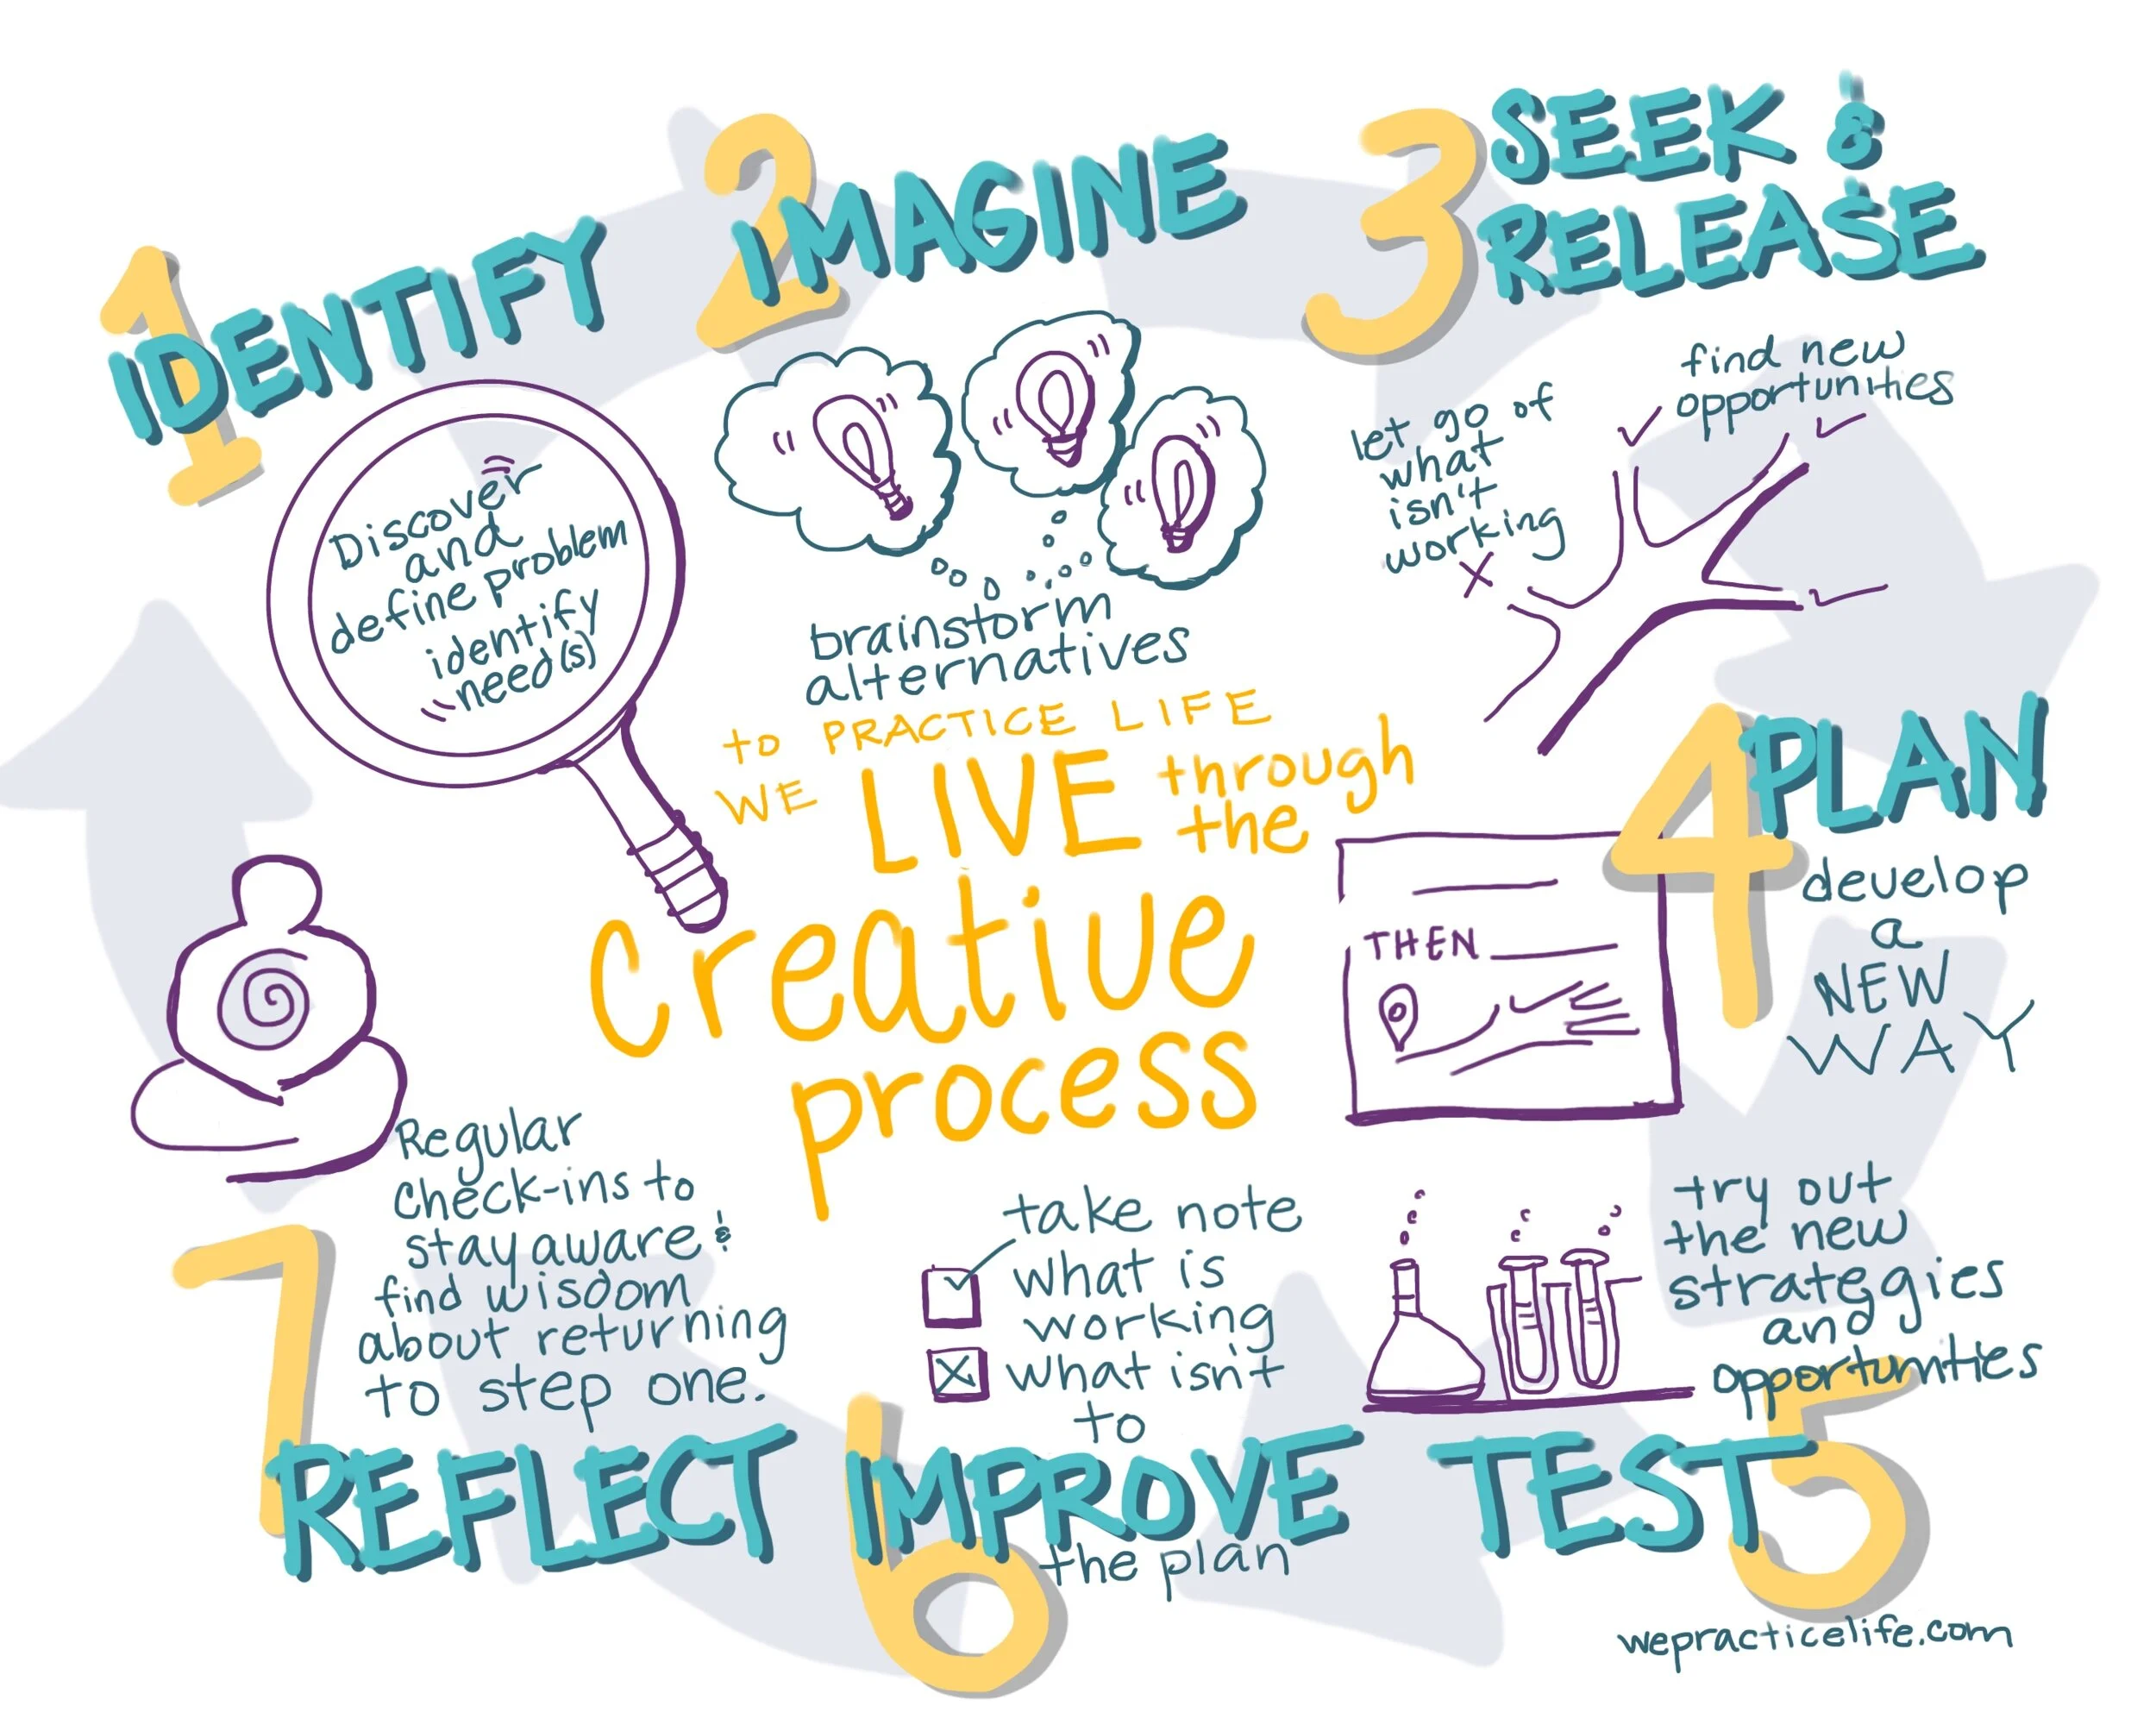 1
IDENTIFY
Discover
and
define problem
identify
need(s)
2
IMAGINE
brainstorm
alternatives
3
SEEK &
RELEASE
let go of
what
isn't
working
find new
opportunities
to PRACTICE LIFE
WE LIVE through
the
creative
process
4
PLAN
develop
a
NEW
WAY
THEN
try out
the new
strategies
and
opportunities
TEST
5
take note
what is
working
what isn't
to
6
IMPROVE
the plan
Regular
check-ins to
stay aware &
find wisdom
about returning
to step one.
7
REFLECT
wepracticelife.com